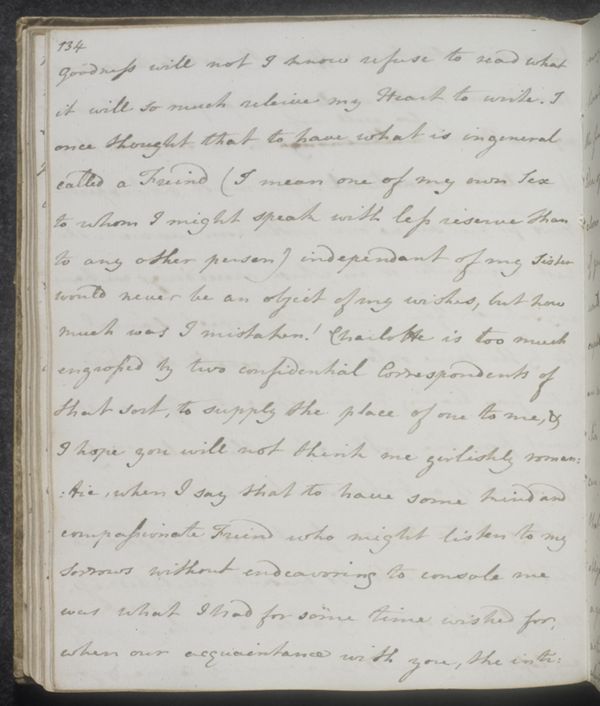 134
Goodness will not I know refuse to read what
it will so much releive my Heart to write. I
once thought that to have what is in general
called a Freind (I mean one of my own Sex
to whom I might speak with less reserve than
to any other person) independant of my Sister
would never be an object of my wishes, but how
much was I mistaken! Charlotte is too much
engrossed by two confidential Correspondents of
that sort, to supply the place of one to me, &
I hope you will not think me girlishly roman:
:tic, when I say that to have some kind and
compassionate Freind who might listen to my
Sorrows without endeavoring to console me
was what I had for some time wished for,
when our acquaintance with you, the inti: